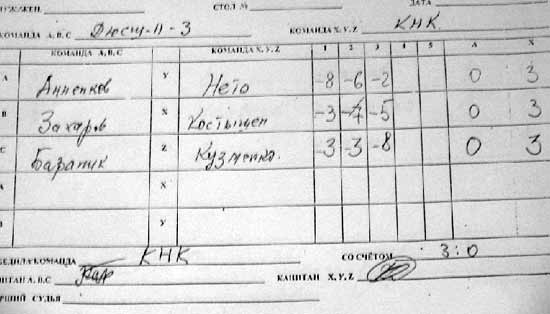 МУЖ/ЖЕН. СТОЛ № ДАТА
КОМАНДА А,В,С Дюсш-11-3 КОМАНДА X,Y,Z КНК
КОМАНДА А,В,С КОМАНДА X,Y,Z 1 2 3 4 5 А X
А Анненков Y Нето -8 -6 -2 0 3
В Захаров X Костышен -3 -7 -5 0 3
С Z Кузменко. -3 -3 -8 0 3
А X
В Y
КОМАНДА КНК СО СЧЁТОМ 3:0
КАПИТАН А,В,С КАПИТАН X,Y,Z
СУДЬЯ